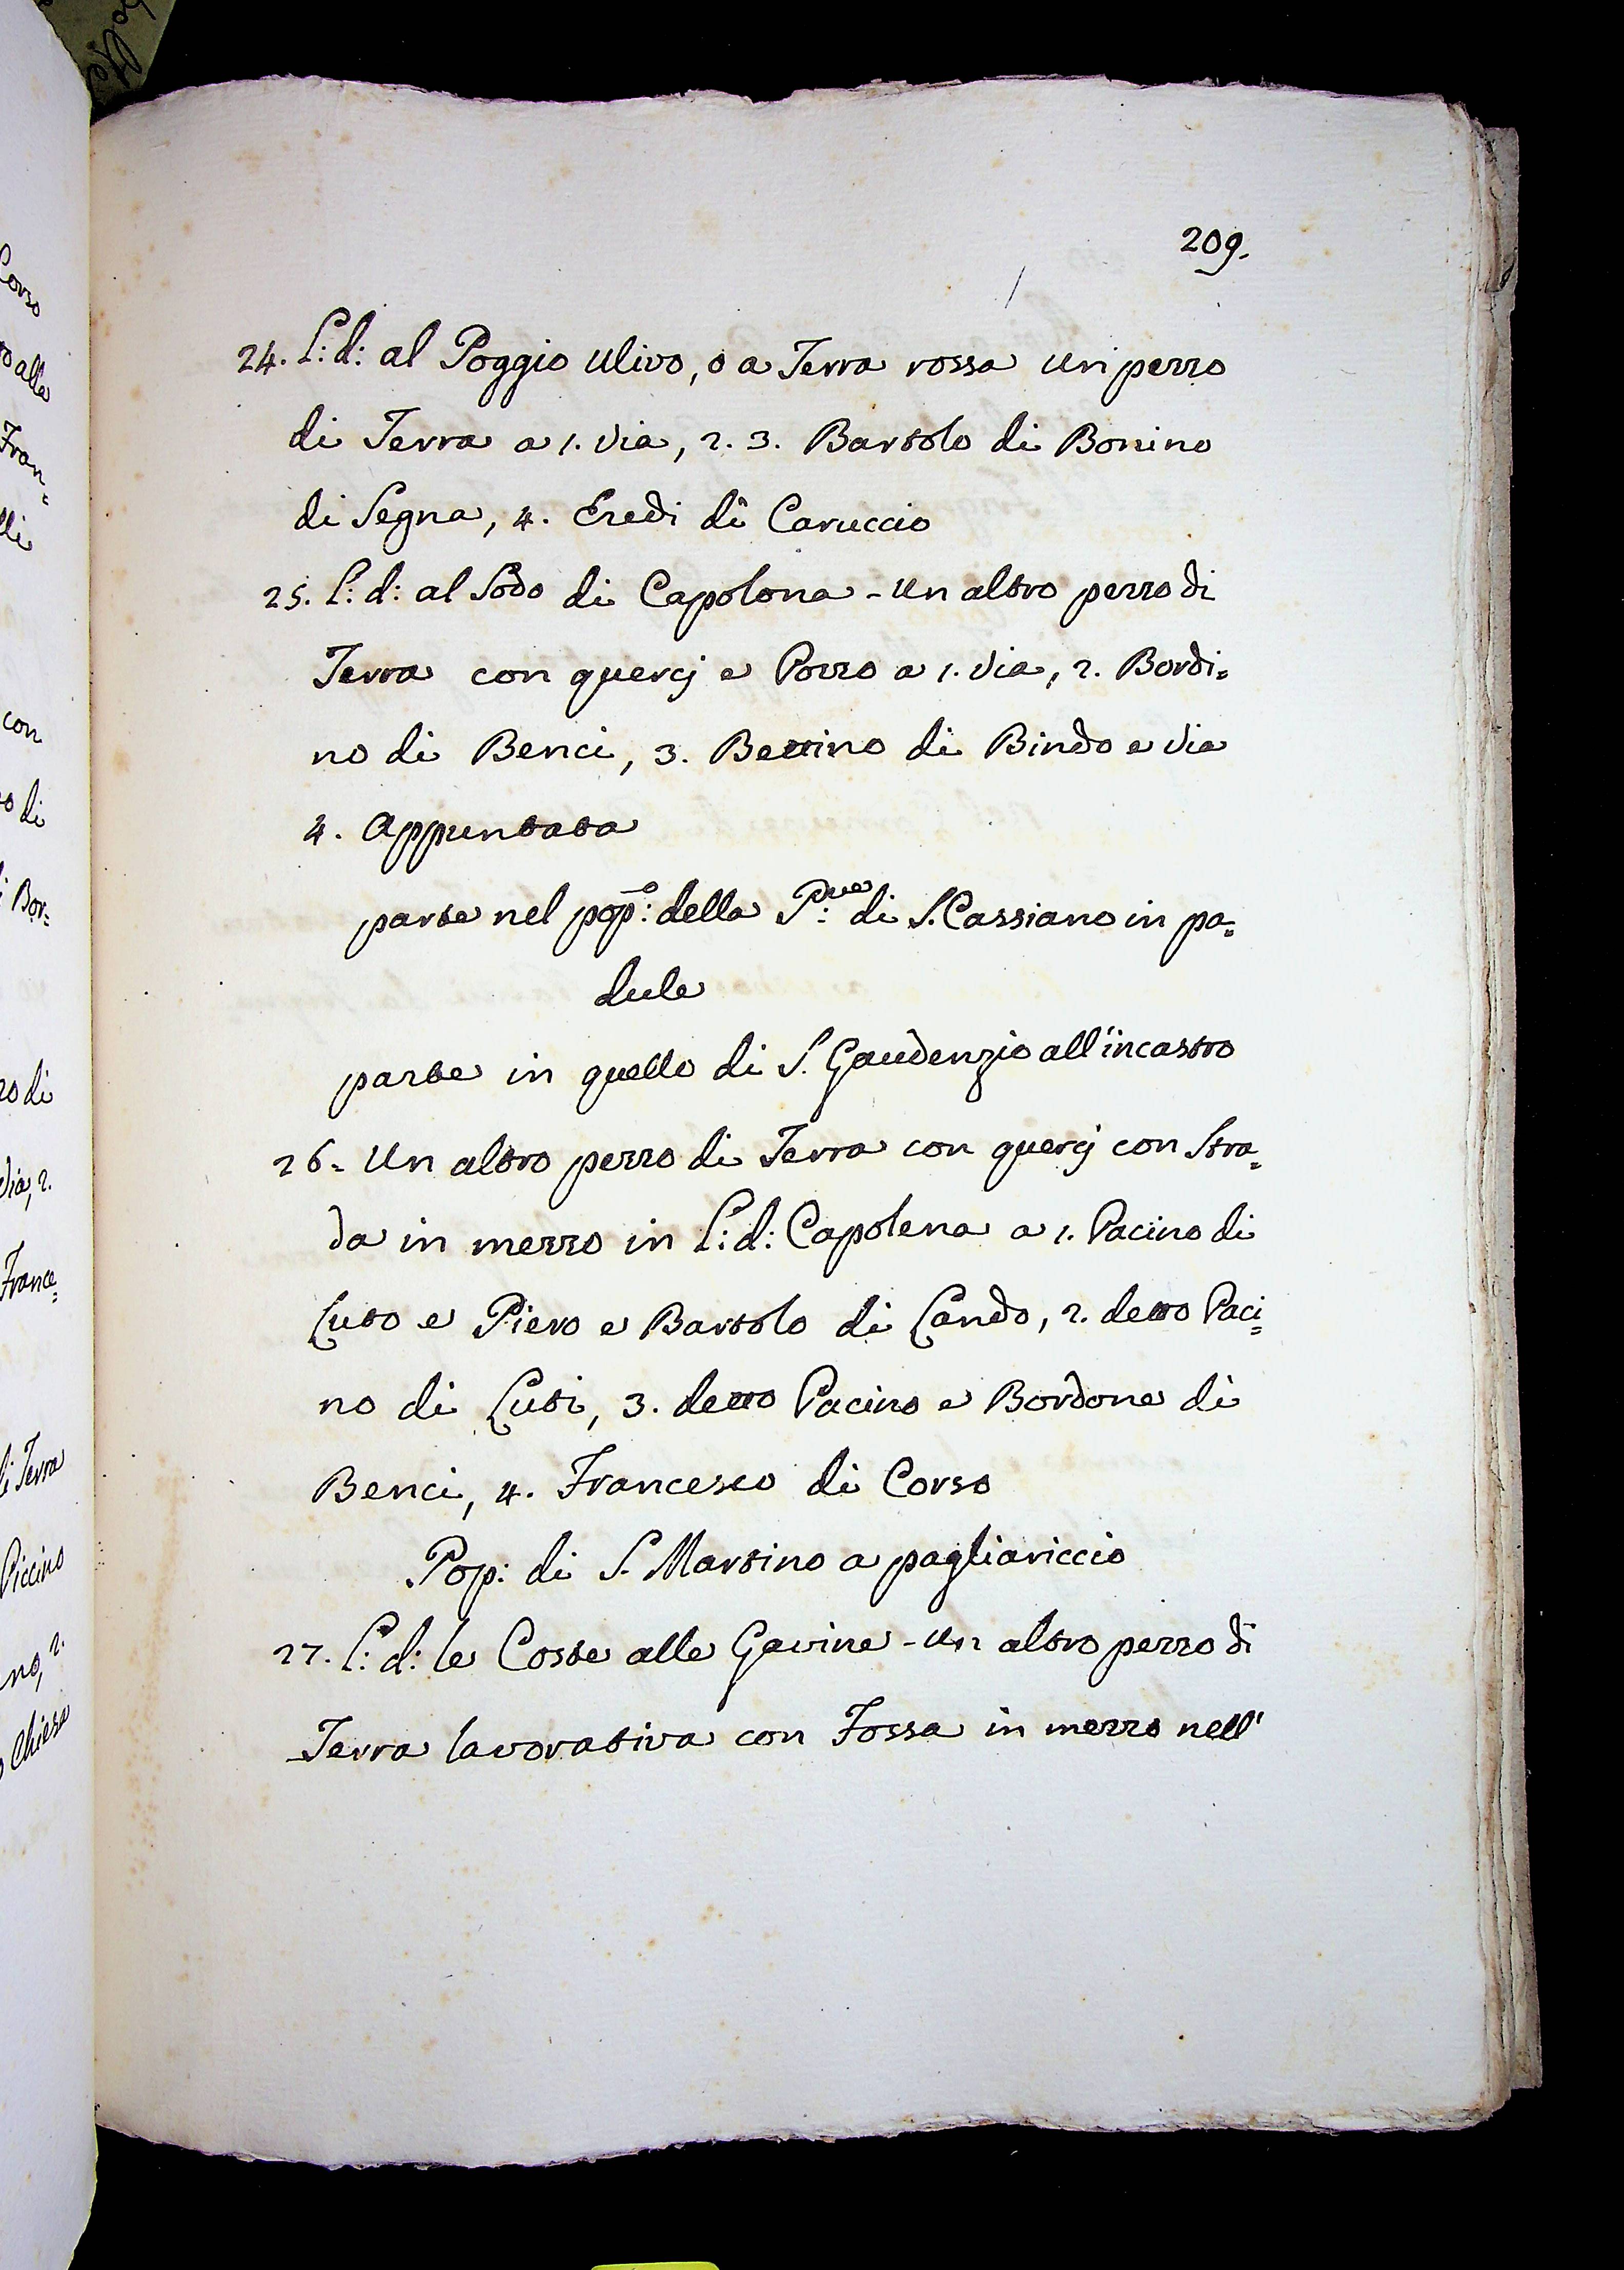 209.
24. L: d: al Poggio ulivo, o a Terra rossa un pezzo
di Terra a 1. via, 2. 3. Bartolo di Bonino
di Segna, 4. Eredi di Caruccio
25. L: d: al Sodo di Capolona - un altro pezzo di
Terra con quercj e Pozzo a 1. via, 2. Bordi=
no di Benci, 3. Bettino di Bindo e via
4. Appuntata
parte nel pop:o della P:ve di S. Cassiano in pa=
dule
parte in quello di S. Gaudenzio all'incastro
26. Un altro pezzo di Terra con quercj con Stra=
da in mezzo in L: d: Capolena a 1. Pacino di
Luto e Piero e Bartolo di Lando, 2. detto Paci=
no di Luti, 3. detto Pacino e Bordone di
Benci, 4. Francesco di Corso
Pop: di S. Martino a pagliariccio
27. L: d: le Coste alle Gavine - un altro pezzo di
Terra lavorativa con Fossa in mezzo nell'
Corso
alla
Fran=
con
di
Bor=
di
via, 2.
France=
di Terra
Piccino
no, 2.
Chiesa